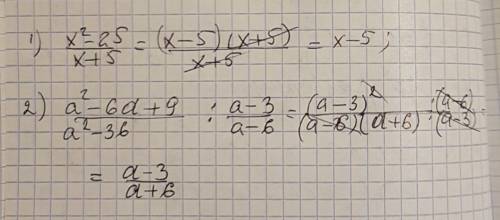 1) x²-25/x+5 = (x-5)(x+5)/x+5 = x-5;
2) a²-6a+9/a²-36 : a-3/a-6 = (a-3)²/(a-6)(a+6) : (a-6)/(a-3)
= a-3/a+6